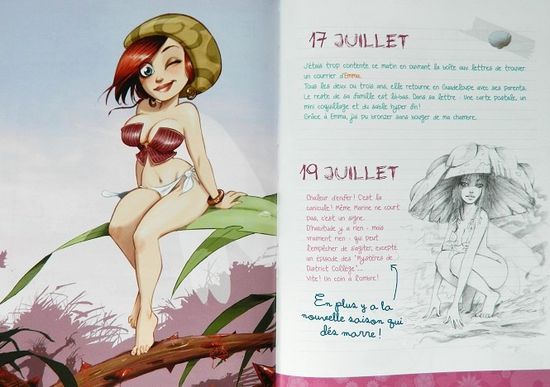 17 JUILLET
J'étais trop contente ce matin en ouvrant la boîte aux lettres de trouver
un courrier d'Emma.
Tous les deux ou trois ans, elle retourne en Guadeloupe avec ses parents.
Le reste de sa famille est là-bas. Dans sa lettre : Une carte postale, un
mini coquillage et du sable hyper fin!
Grâce à Emma, j'ai pu bronzer sans bouger de ma chambre.
19 JUILLET
Chaleur d'enfer! C'est la
canicule! Même Marine ne court
pas, c'est un signe.
D'habitude y a rien - mais
vraiment rien - qui peut
l'empêcher de s'agiter, excepté
un épisode des "Mystères de
District Collège"...
Vite! Un coin à l'ombre!
En plus y a la
nouvelle saison qui
dés marre!